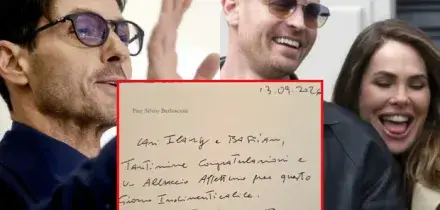 13.09.2026
Pier Silvio Berlusconi
Cari Ilary e Bastian,
Tantissime Congratulazioni e
un Abbraccio Affettuoso per questo
Giorno Indimenticabile.